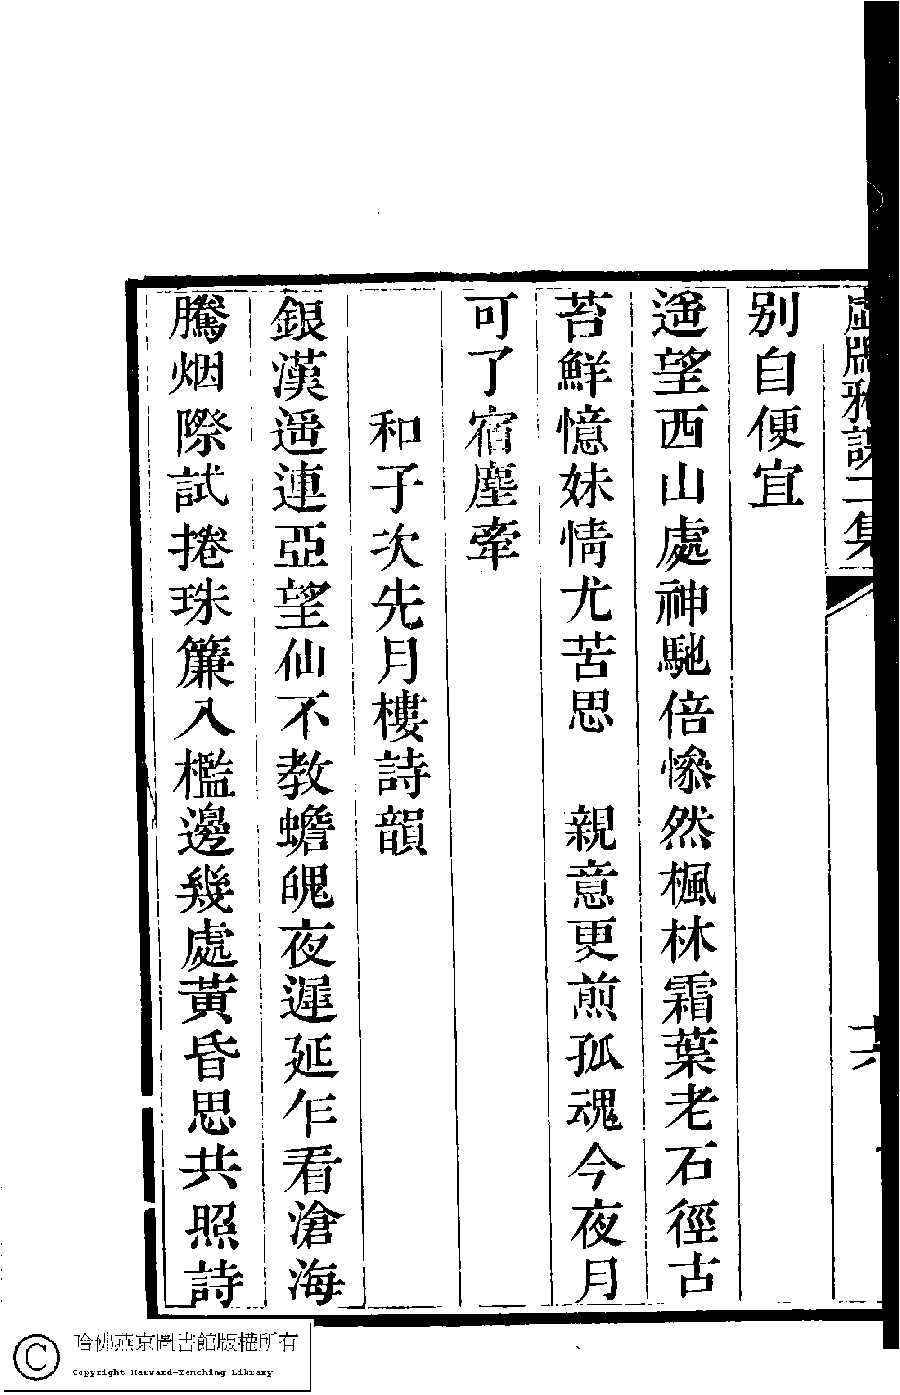 别自便宜
遥望西山處神馳倍慘然楓林霜葉老石徑古
苔鮮憶妹情尤苦思　親意更煎孤魂今夜月
可了宿塵牽
和子次先月樓詩韻
銀漢遥連亞望仙不教蟾魄夜遲延乍看滄海
騰烟際試捲珠簾入檻邊幾處黃昏思共照詩
哈佛燕京圖書館版權所有
Copyright Harvard-Yenching Library